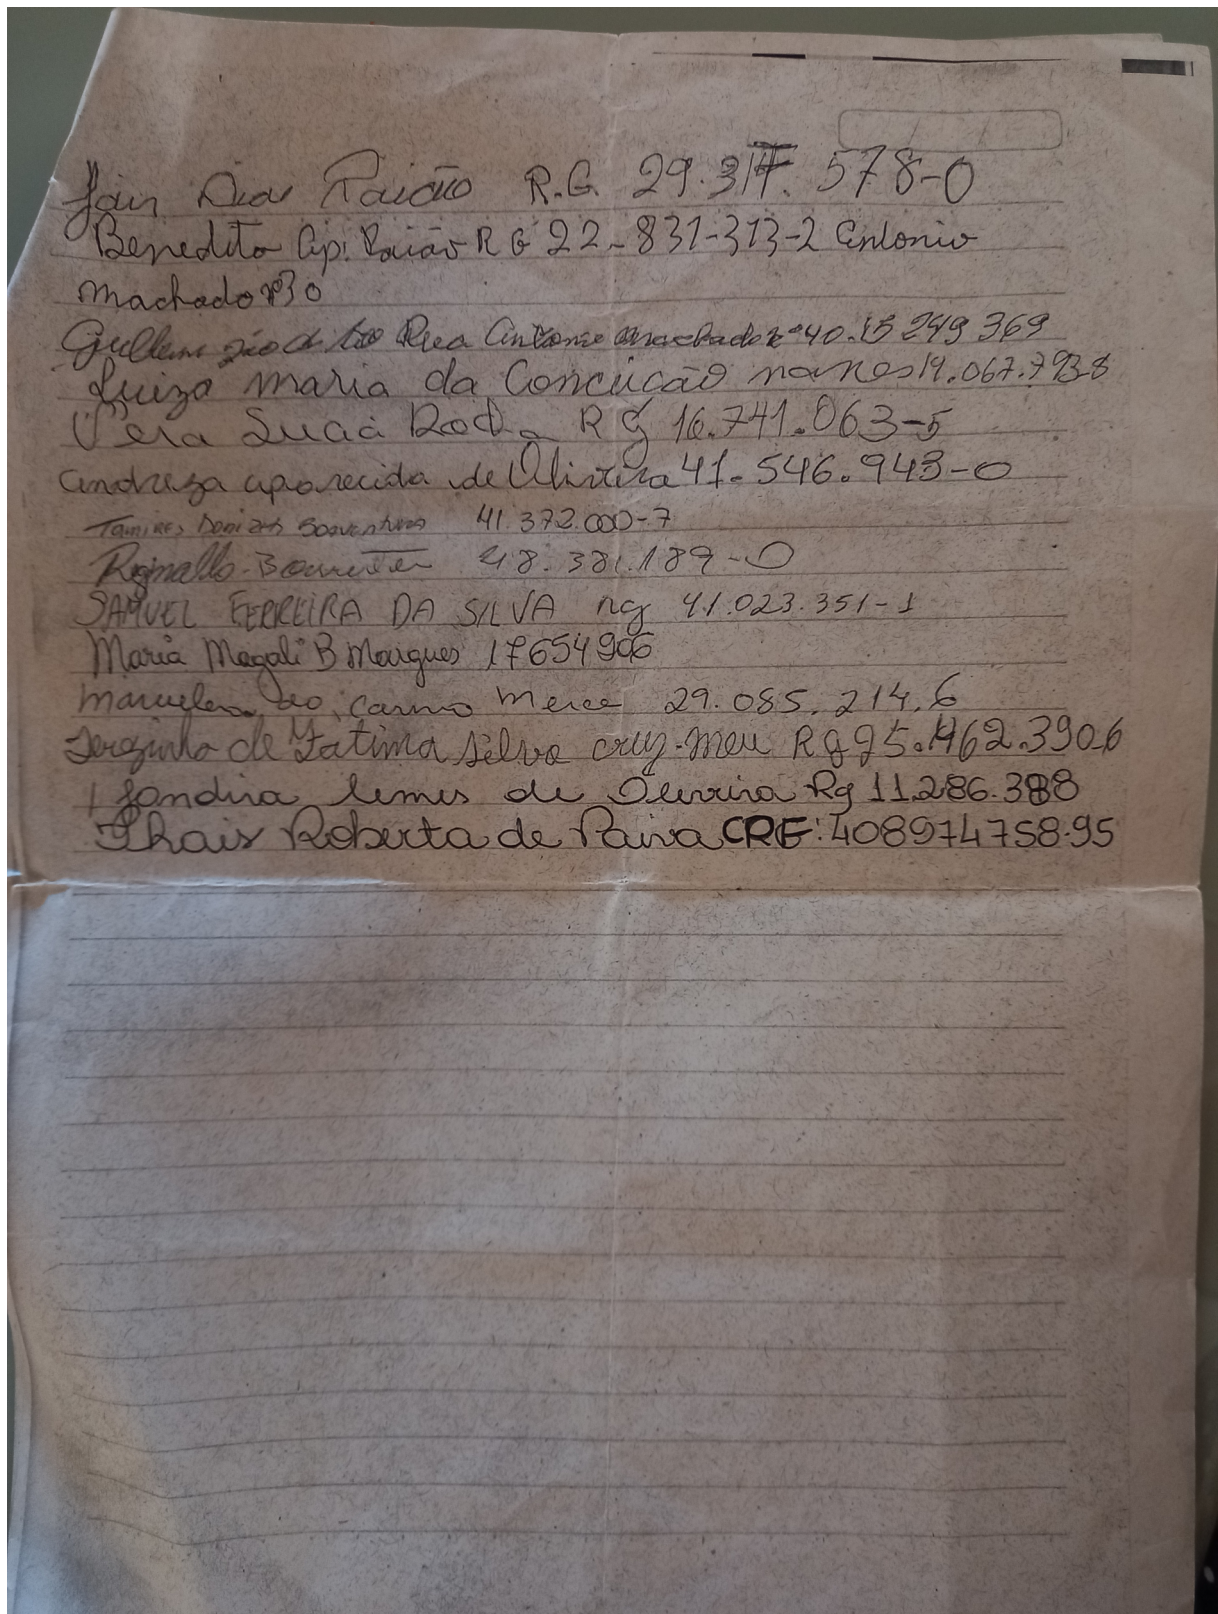 Jair Dias Paixão R.G. 29.317.578-0
Benedito Ap. Paixão RG 22-831-313-2 Antonio
Machado nº30
Rua Antonio machado nº 40.15249369
Luiza maria da Conceição 19.067.793-8
Vera Lucia Rod. RG 16.741.063-5
andreza aparecida de Oliveira 41.546.943-0
Tamires Boaventura 41.372.000-7
48.381.189-0
SAMUEL FERREIRA DA SILVA rg 41.023.351-1
Maria Magali B Marques 17654906
do carmo 29.085.214.6
Terezinha de Fatima Silva cruz. Rg 25.462.3906
Jandira lemes de Oliveira Rg 11.286.388
Thais Roberta de Paiva CPF: 408974758.95